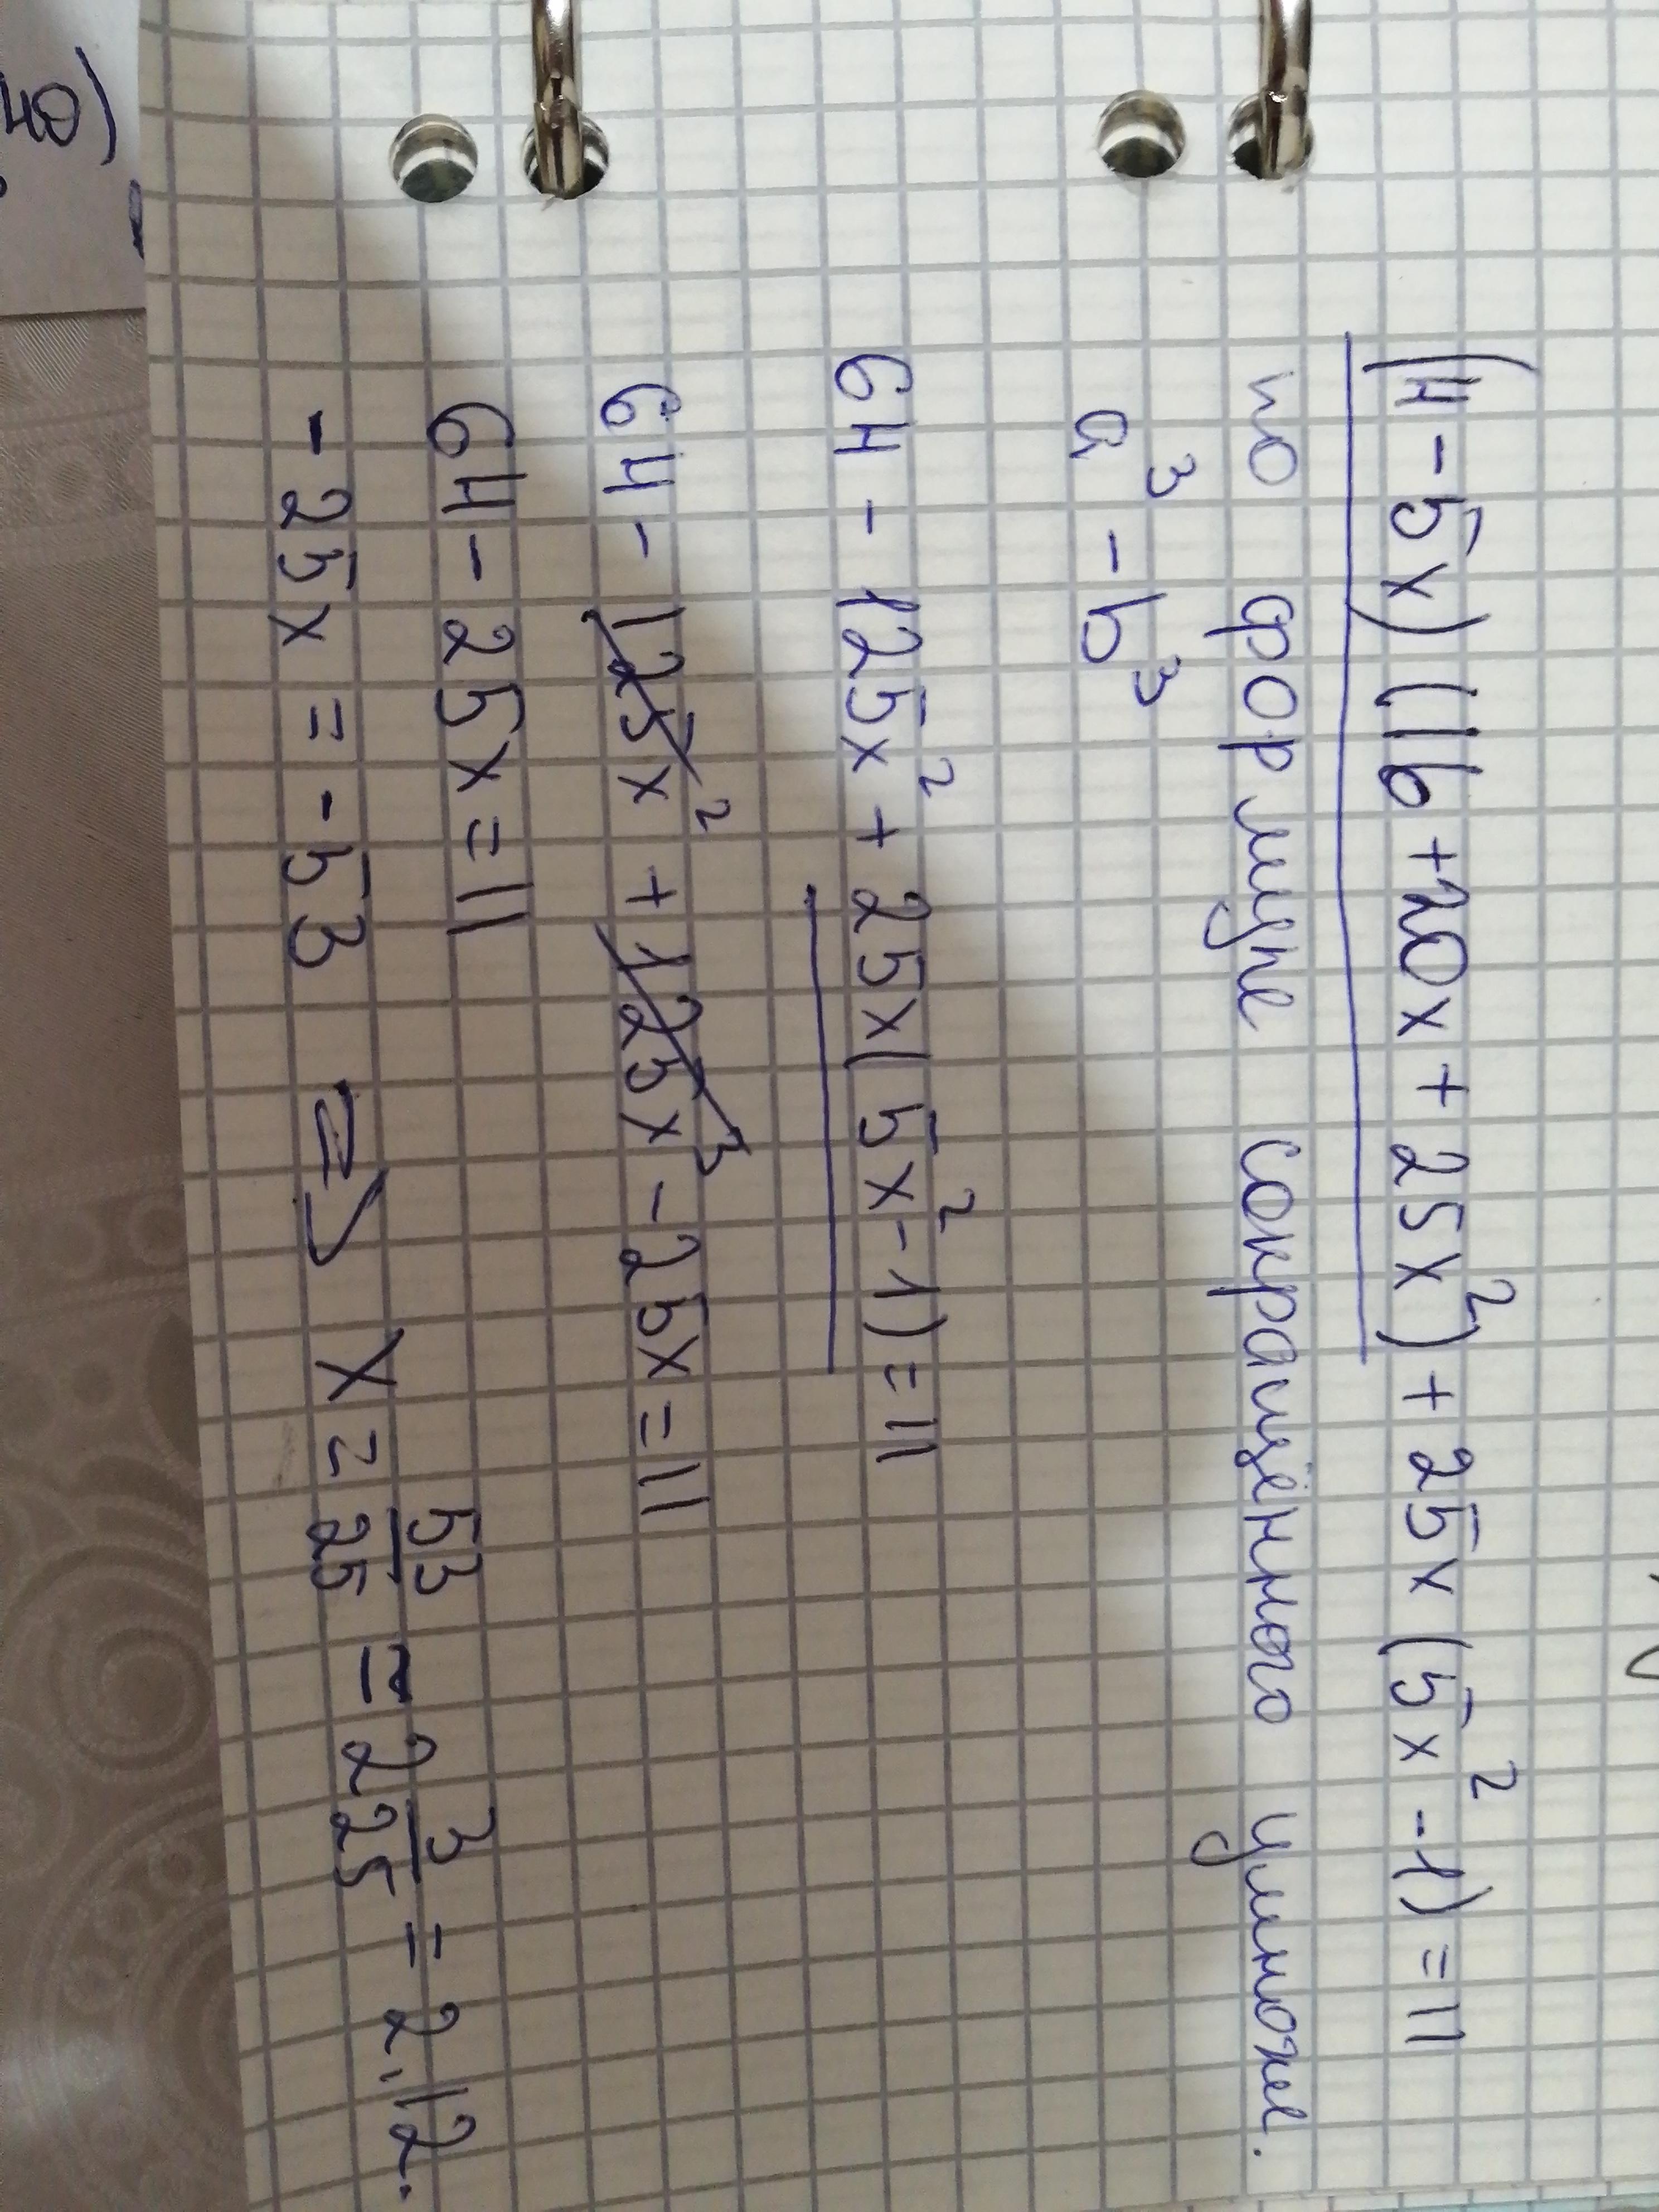 (4-5x)(16+20x+25x²)+25x(5x²-1)=11
по формуле сокращённого умнож.
a³-b³
64-125x²+25x(5x²-1)=11
64-125x²+125x³-25x=11
64-25x=11
-25x=-53 => x=53/25=2 3/25=2,12.
40)